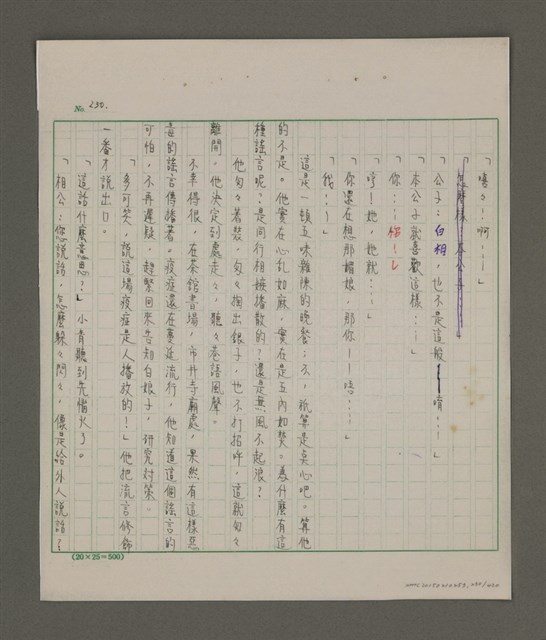 No. 230.
「嗯々！啊！—」
「怎麼樣，本公子—」
「公子：白相，也不是這般——唷！—」
「本公子就喜歡這樣：！—」
「你：：　！」
「哼！她，她就：！—」
「你還在想那媚娘，那你！—唔：：」
「我：！」
這是一頓五味雜陳的晚餐；不，祇算是桌心吧。算他
的不是。他實在心乱如麻，實在是五內如焚。為什麼有這
種謠言呢？是同行相嫉播散的？還是無風不起浪？
他匆々著裝，匆々掏出銀子，也不打招呼，這就匆々
離開，他決定到處走々，聽々巷語風聲。
不幸得很，在茶館書場，市井寺廟處，果然有這樣惡
毒的謠言傳播著。疫症還在蔓延流行，他知道這個謠言的
可怕，不再遲疑，趕緊回來告知白娘子，研究對策。
「多可笑，說這場疫症是人播放的！」他把流言修飾
一番才說出口。
「這話什麼意思？」小青聽到先惱火了。
「相公：您說話，怎麼躲々閃々，像是給外人說話？
(20×25=500)